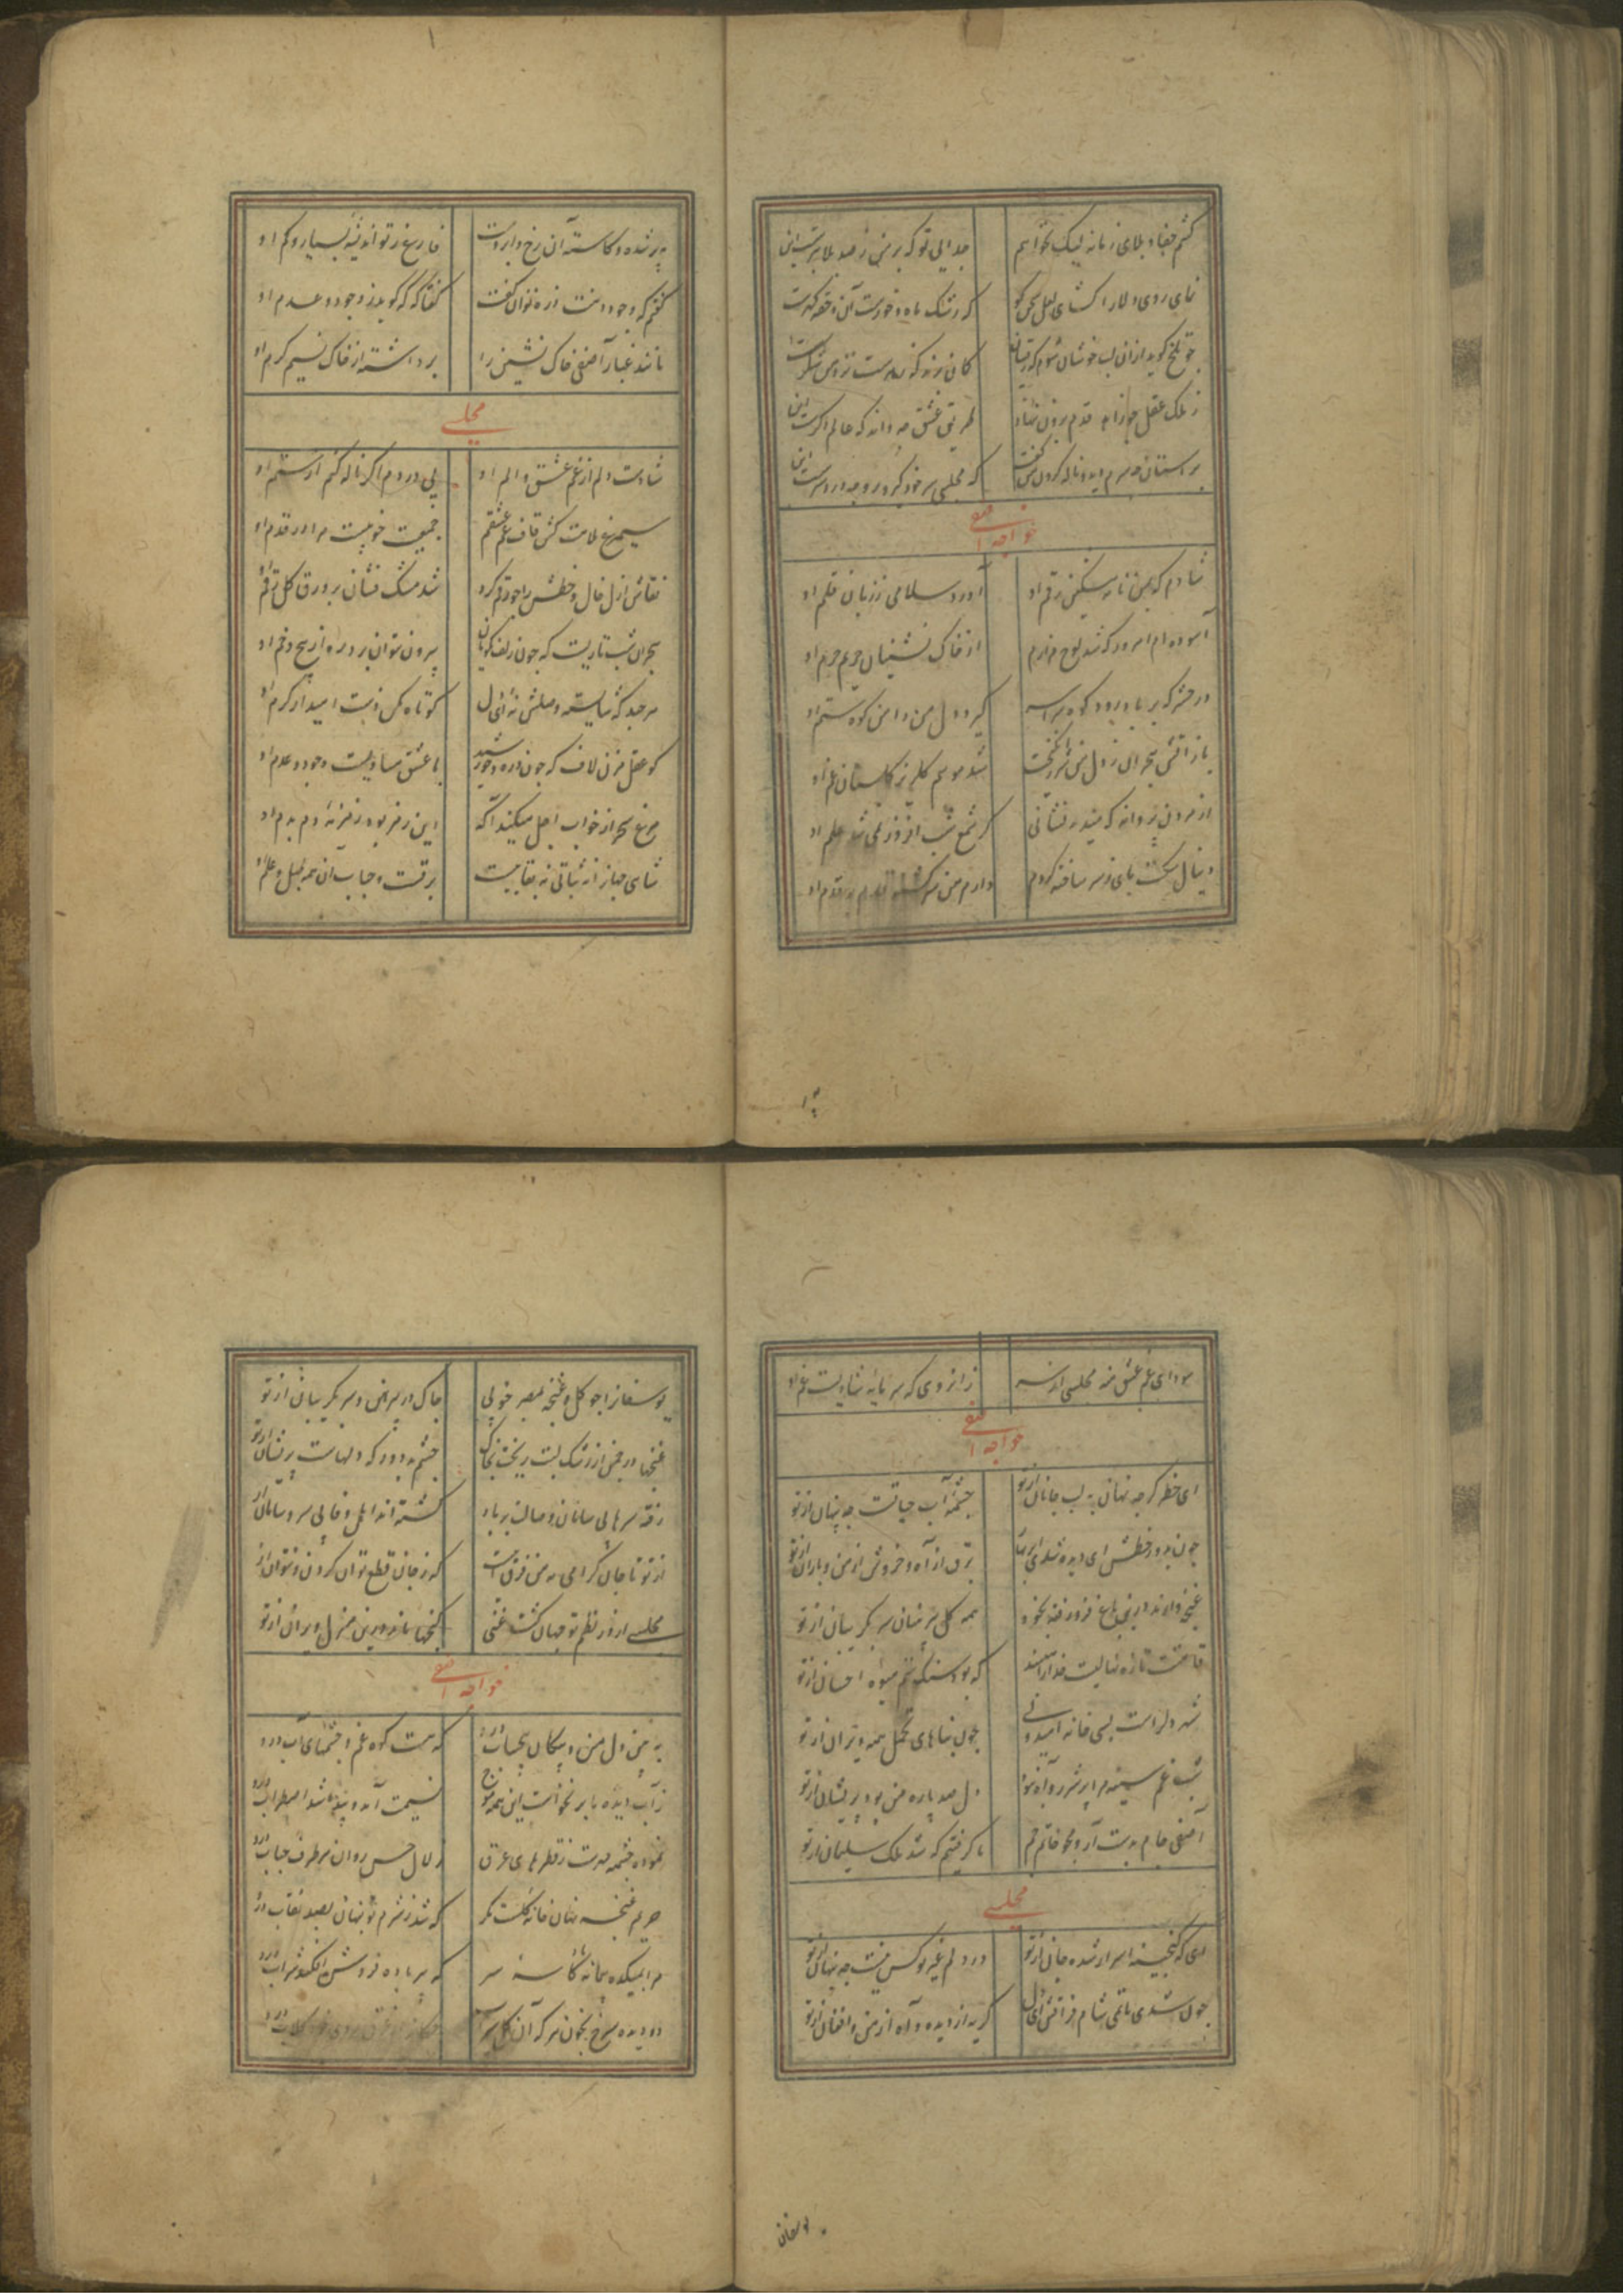 کشم جفا و بلای زمانه لیک نخواهم جدایی تو که بر من ز صد بلا بترست این
نمای روی دلارا گشای لعل سخن گو که رشک ماه و خورست آن و حقه گهرست
چو تلخ گوید از آن لب خوشان شوم که رقیبان گمان برند که زهرست نزد من شکرست
ز ملک عقل چو زاهد قدم برون ننهاده طریق عشق چه داند که عالم دگرست این
بر آستان چو سرم دید و ناله کردن من گفت که مجلسی سر خود گیر و رو چه دردسرست این
خواجه آصفی
شادم که بمن نامه مشکین رقم او آورد سلامی ز زبان قلم او
آسوده‌ام امروز که شد لوح مزارم از خاک نشینان حریم حرم او
در حشر که بر باد رود کوه سراسر گیرد دل من دامن کوه ستم او
باز آتش هجران ز دل من شرر انگیخت شد موسم گلریز گلستان غم او
از مردن پروانه که میداد نشانی گر شمع شب افروز نمی‌شد علم او
دنبال سگت پای ز سر ساخته کردم دارم من سرگشته قدم بر قدم او
پر شده و کاسته آن رخ و ابروست فارغ ز تو اندیشه بسیار و کم او
گفتم که وجود دهنت ذره توان گفت گفتا که که گوید ز وجود و عدم او
مانند غبار آصفی خاک نشین را برداشته از خاک نسیم کرم او
مجلسی
شادست دلم از غم عشق و الم او بی دردم اگر ناله کنم از ستم او
سیمرغ ملامت کش قاف غم عشقم جمعیت خوبیست مرا در قدم او
نقاش ازل خال و خطش را چو رقم کرد شد مشک فشان بر ورق گل رقم او
هجران شب تاریست که چون زلف نکویان بیرون نتوان برد ره از پیچ و خم او
هر چند که شایسته وصلش نه‌ای دل کوتاه مکن دست امید از کرم او
گو عقل مزن لاف که چون ذره و خورشید با عشق مساویست وجود و عدم او
مرغ سحر از خواب اجل میکند آگه این رمز بود زمزمه دم بدم او
شاهی جهان را نه ثباتی نه بقاییست برقست و حباب آن همه طبل و علم او
سودای غم عشق منه مجلسی از سر زانروی که سرمایه شادیست غم او
خواجه آصفی
ای خضر گر چه نهانی به لب جانان از تو چشمه آب حیاتست چه پنهان از تو
چون بدور خطش ای دیده شدی ابر بهار برق از آه و خروش از من و باران از تو
غنچه‌وارند درین باغ فرو رفته بخود همه گل پیرهنان سر بگریبان از تو
قامتت تازه نهالیست خدا را مپسند که بود سنگ ستم میوه افشان از تو
شهر دلراست بسی خانه امید ولی چون بناهای تحمل همه ویران از تو
شب غم سینه‌ام از شرر آه بسوخت دل صد پاره من بود پریشان از تو
آصفی جام بدست آر و مجو خاتم جم ما گرفتیم که شد ملک سلیمان از تو
مجلسی
ای که گنجینه اسرار شده جانی از تو در دلم غیر تو کس نیست چه پنهان از تو
چون شدی ماتمی شام فراقش ای دل گریه از دیده و آه از من و افغان از تو
یوسفان
یوسفان را چو گل و غنچه بمصر خوبی چاک در پیرهن و سر بگریبان از تو
غنچها در چمن از رشک لبت ریخت بخاک چشم بد دور که دلهاست پریشان از تو
رفته سرهایی سامان وصالت بر باد گشته‌اند اهل وفا بی سر و سامان از تو
از تو تا جان گرامی به من فرق اینست که ز جان قطع توان کردن و نتوان از تو
مجلسی از در نظم تو جهان گشت غنی گنجها ماند درین منزل ویران از تو
خواجه آصفی
به بین دل من و پیکان بیحساب درو که هست کوه غم و چشمهای آب درو
ز آب دیده ما بر نخواست این همه موج نسیمت آمد و پیدا شد اضطراب درو
نموده چشمه مهرت ز قطرهای عرق زلال حسن روان هر طرف حباب درو
حریم غنچه نهان خانه گلست مگر که شد ز شرم تو پنهان بصد نقاب درو
مرا بمیکده پیمانه کاسه سر که پیر باده فروش افکند شراب درو
دو دیده سرخ بخون هر که آن گل